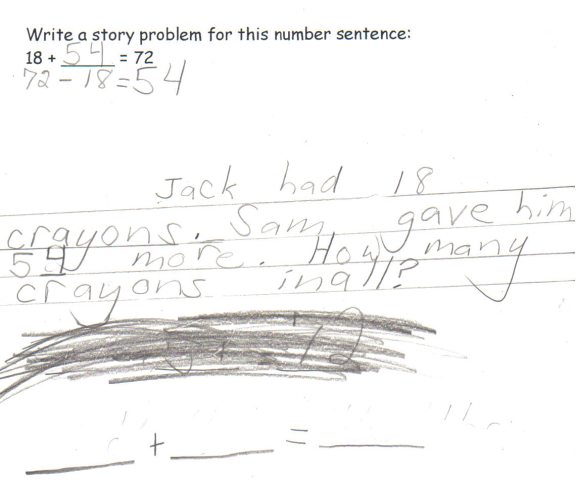 Write a story problem for this number sentence:
18 + 54 = 72
72 - 18 = 54
Jack had 18
crayons. Sam gave him
54 more. How many
crayons inall?
___ + ___ = ___